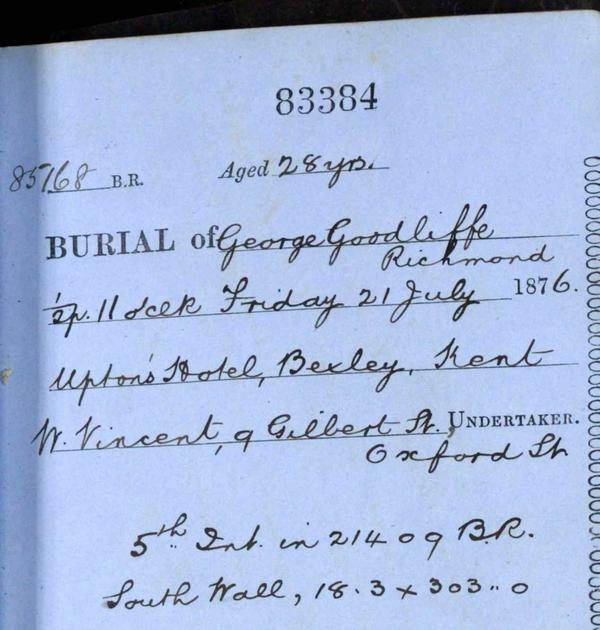 83384
85768 B.R. Aged 28 yrs.
BURIAL of George Goodliffe
Richmond
½ p. 11 oclck Friday 21 July 1876.
Upton's Hotel, Bexley, Kent
W. Vincent, 9 Gilbert St. UNDERTAKER.
Oxford St
5th Int. in 21409 B.R.
South Wall, 18.3 x 303 .. 0